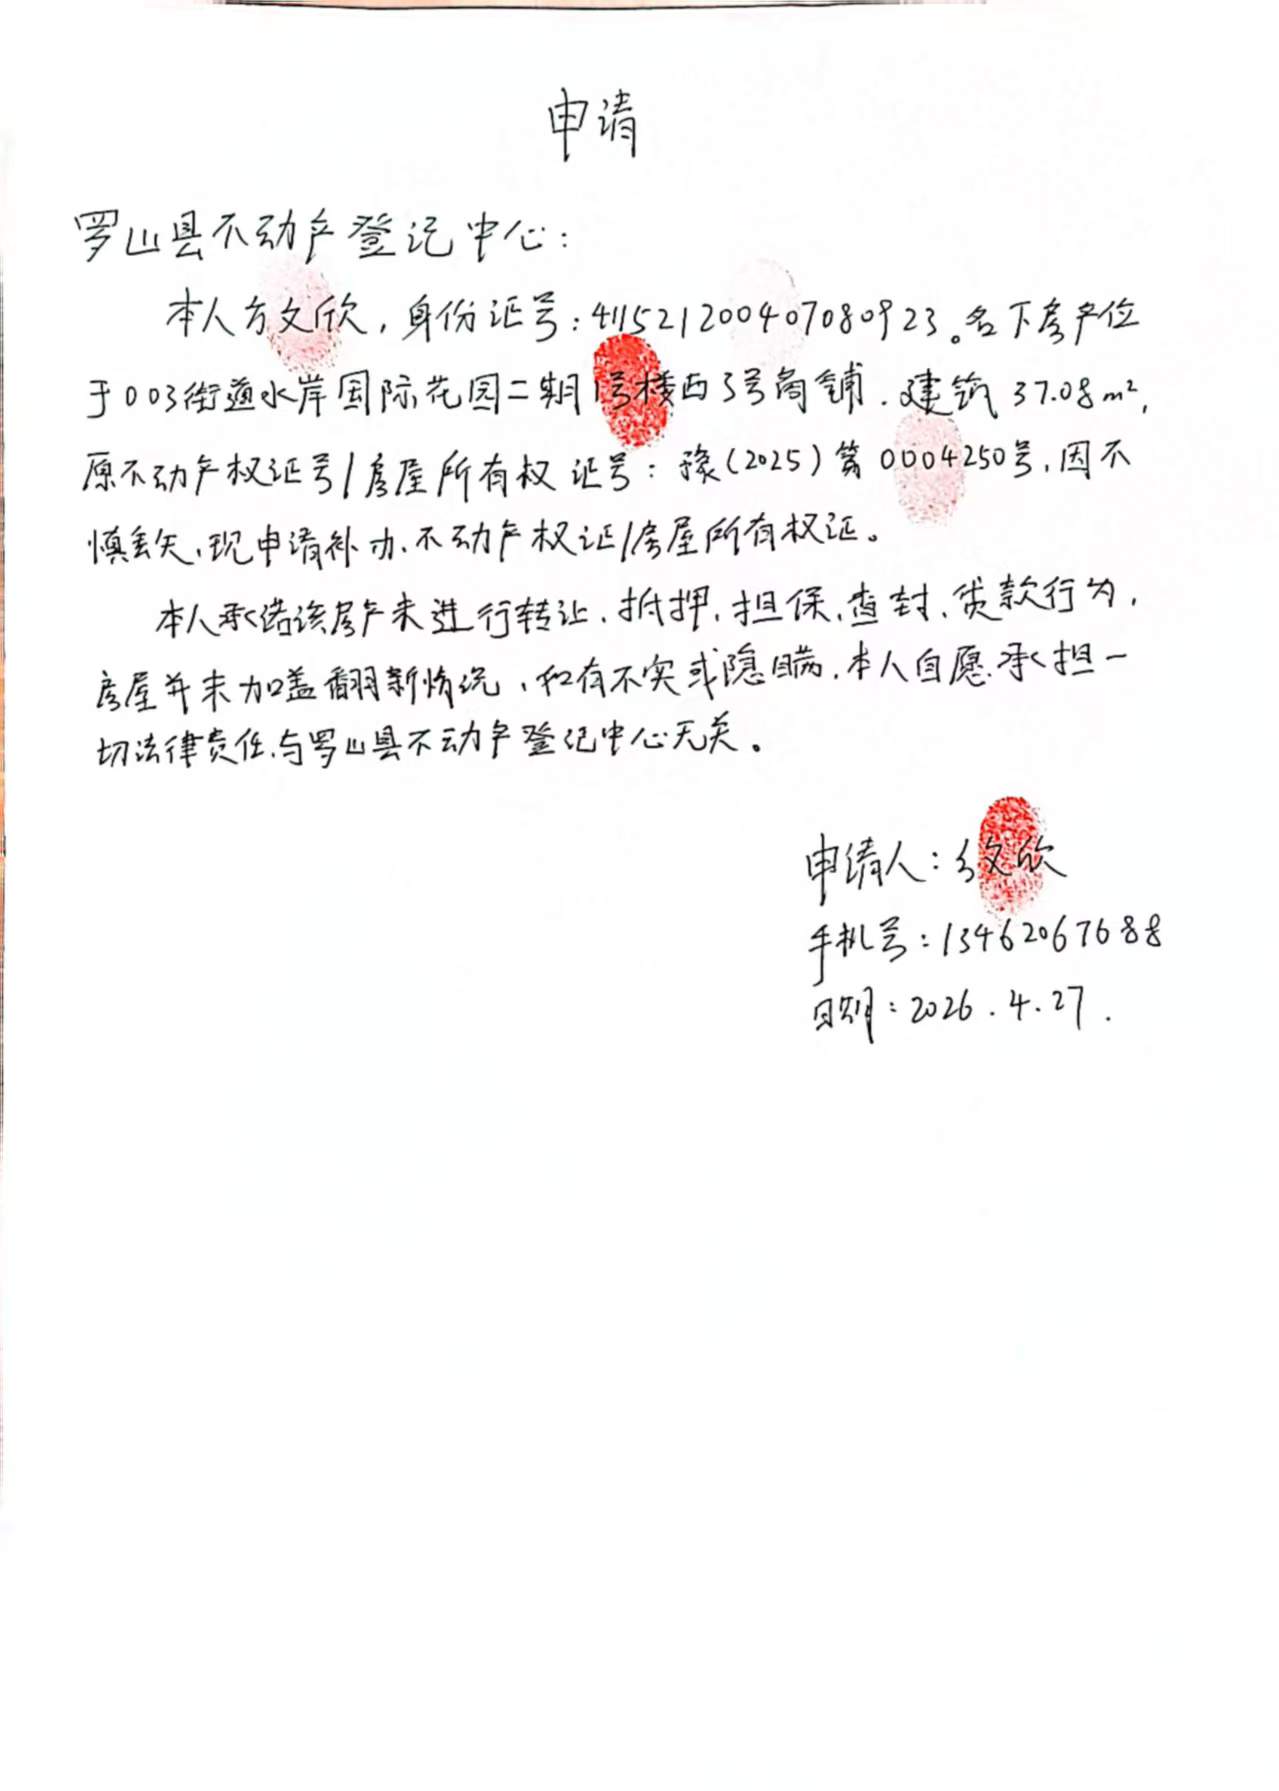 申请
罗山县不动产登记中心：
本人方文欣，身份证号：411521200407080923。名下房产位
于003街道水岸国际花园二期1号楼西3号商铺．建筑37.08m²，
原不动产权证号/房屋所有权证号：豫(2025)第0004250号，因不
慎丢失，现申请补办，不动产权证/房屋所有权证。
本人承诺该房产未进行转让，抵押，担保，查封，贷款行为，
房屋并未加盖翻新情况，如有不实或隐瞒，本人自愿承担一
切法律责任，与罗山县不动产登记中心无关。
申请人：方文欣
手机号：13462067688
日期：2026.4.27.